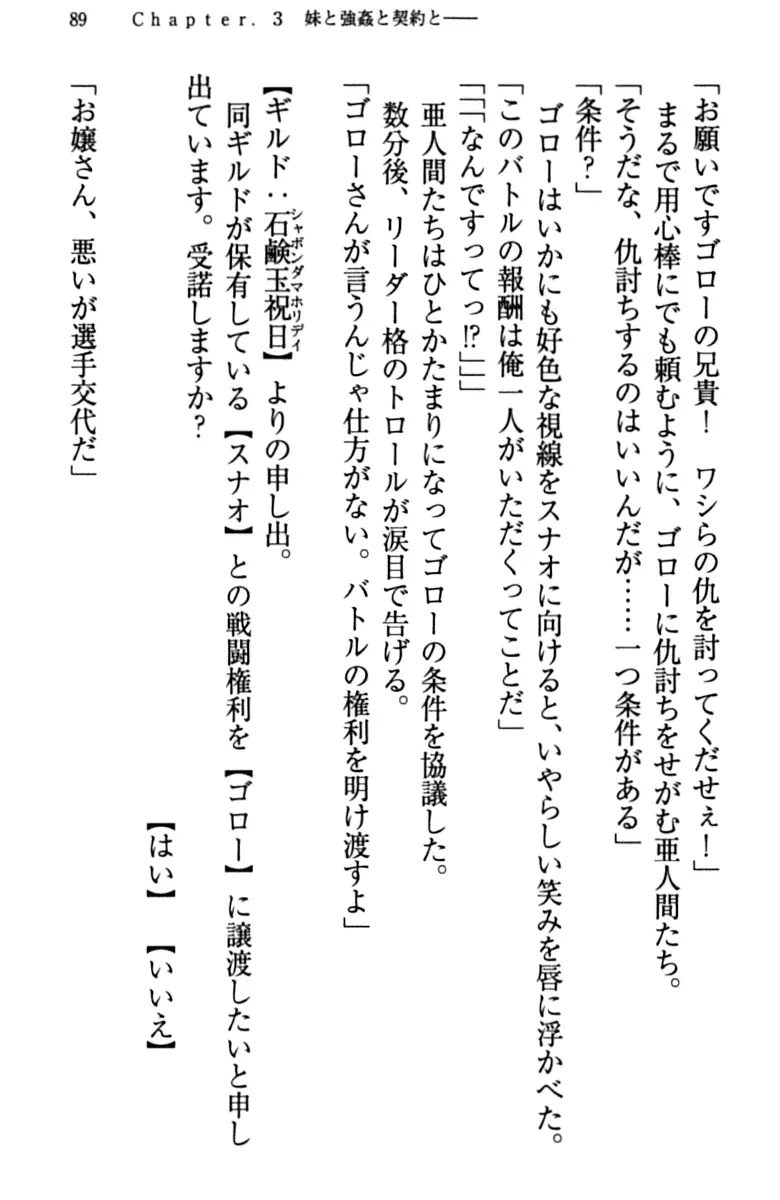 89　Chapter. 3　妹と強姦と契約と――
「お願いですゴローの兄貴！　ワシらの仇を討ってくだせぇ！」
　まるで用心棒にでも頼むように、ゴローに仇討ちをせがむ亜人間たち。
「そうだな、仇討ちするのはいいんだが……一つ条件がある」
「条件？」
　ゴローはいかにも好色な視線をスナオに向けると、いやらしい笑みを唇に浮かべた。
「このバトルの報酬は俺一人がいただくってことだ」
「「「なんですってっ!?」」」
　亜人間たちはひとかたまりになってゴローの条件を協議した。
　数分後、リーダー格のトロールが涙目で告げる。
「ゴローさんが言うんじゃ仕方がない。バトルの権利を明け渡すよ」
【ギルド：石鹸玉祝日】よりの申し出。
シャボンダマホリデイ
　同ギルドが保有している【スナオ】との戦闘権利を【ゴロー】に譲渡したいと申し
出ています。受諾しますか？
【はい】　【いいえ】
「お嬢さん、悪いが選手交代だ」